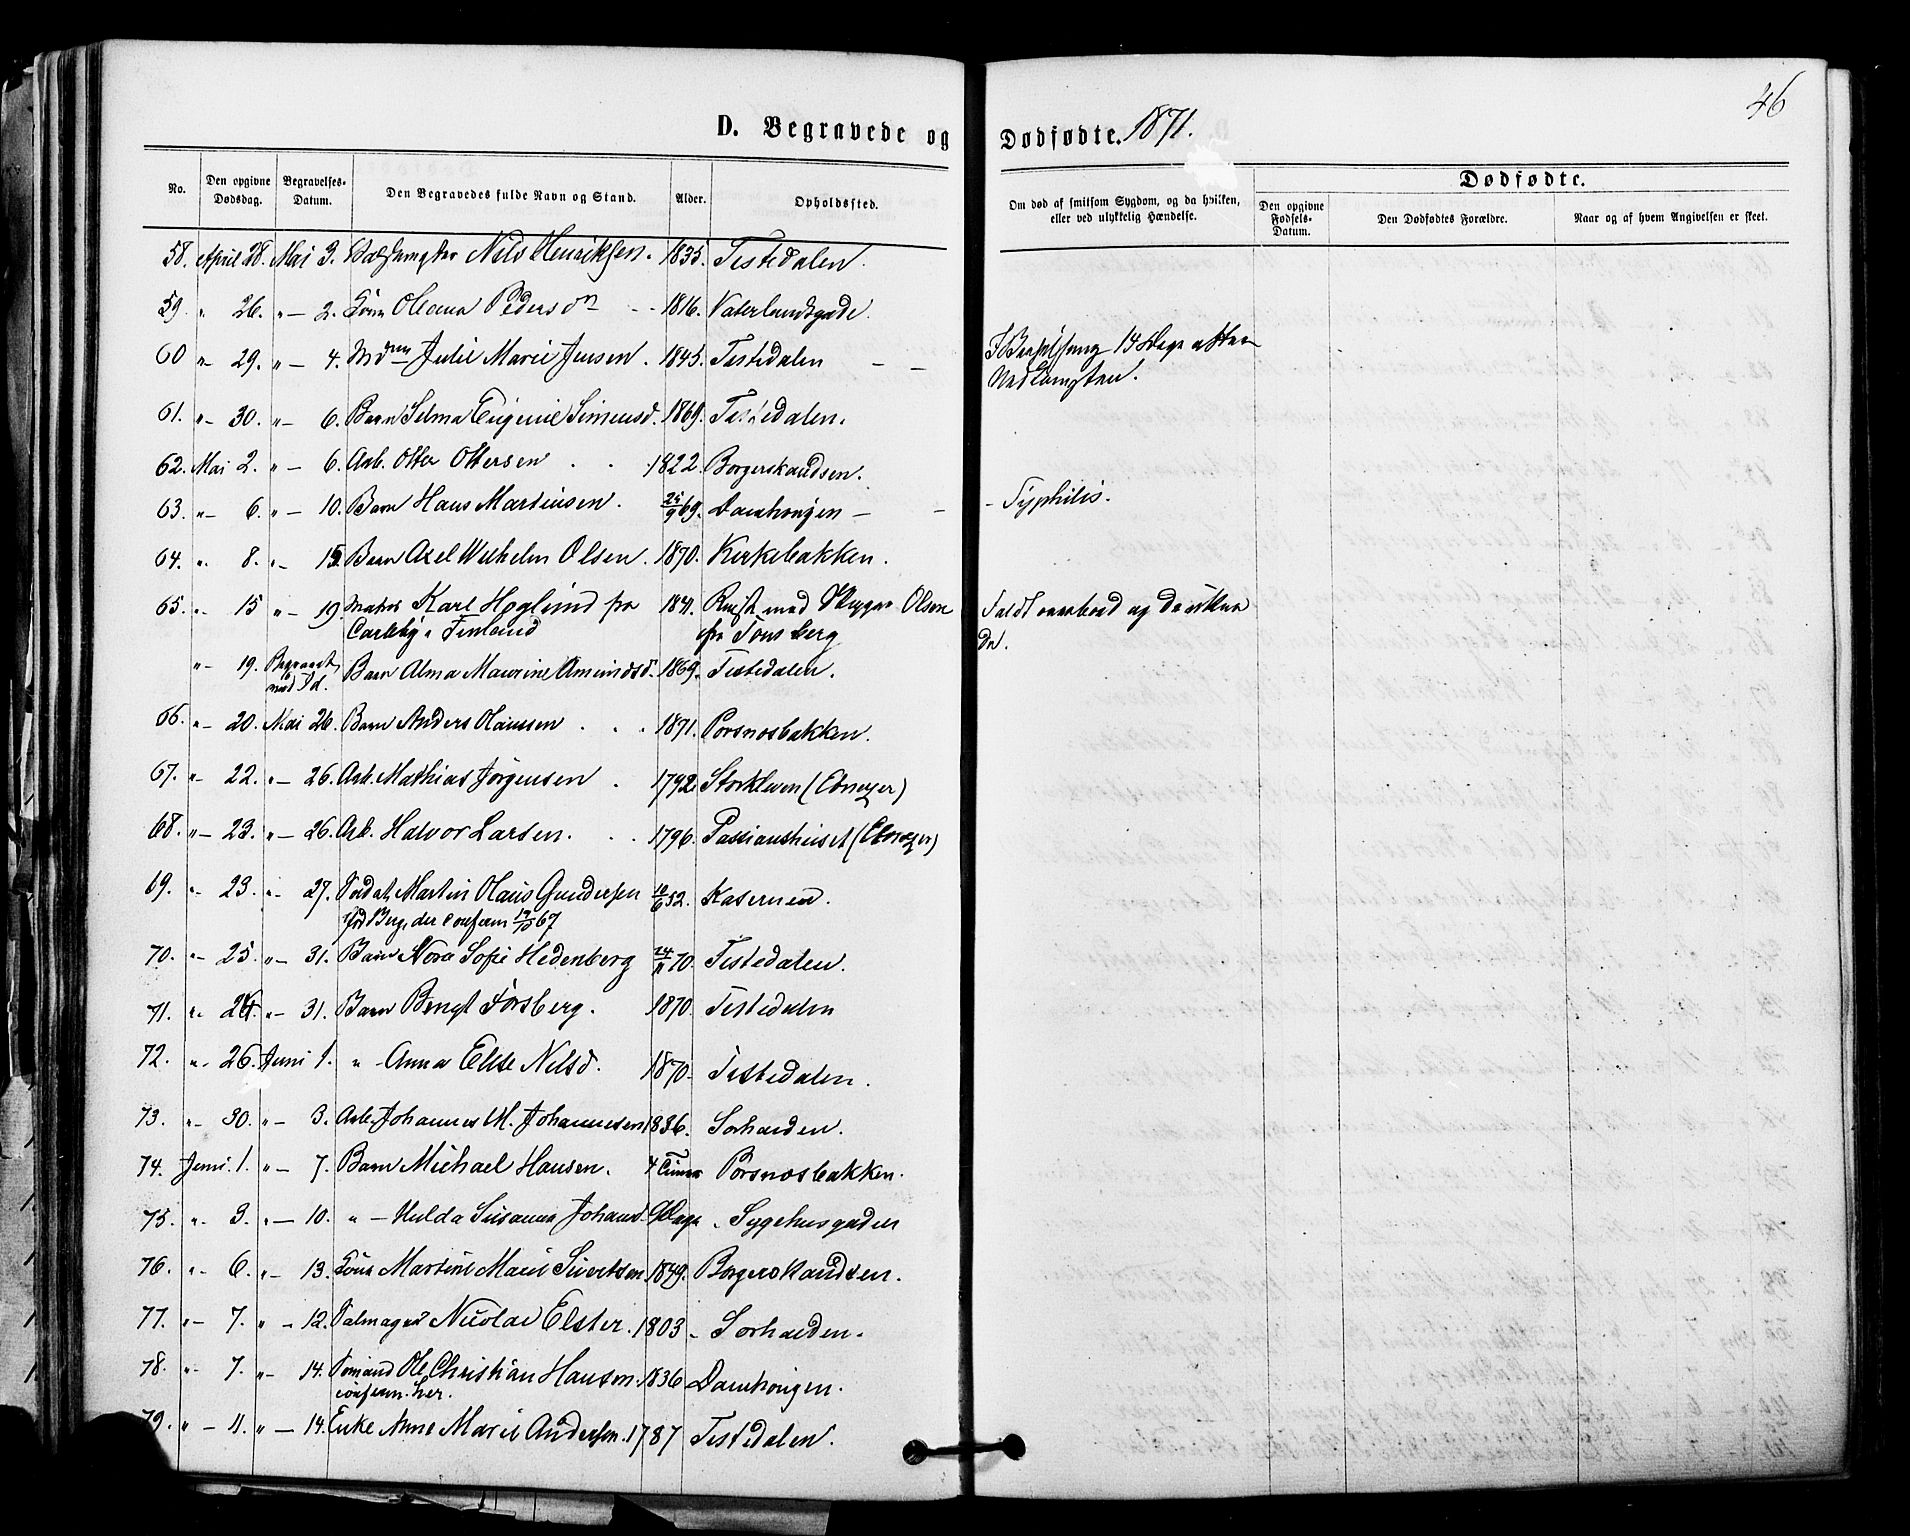 46
D. Begravede og Dødfødte. 1871.
No. Den opgivne Dødsdag. Begravelses-Datum. Den Begravedes fulde Navn og Stand. Alder. Opholdssted. Om død af smitsom Sygdom, og da hvilken, eller ved ulykkelig Hændelse. Dødfødte. Den opgivne Fødsels-Datum. Den Dødfødtes Forældre. Naar og af hvem Angivelsen er skeet.
58. April 28. Mai 3. Nils Henriksen. 1835. Tistedalen.
59. " 26. "- 2. Kone Oleana Pedersdn 1816. Vaterlandsgade.
60 "- 29. "- 4. Julie Marie Jensen. 1845. Tistedalen - - I Barselseng 14 Dage efter
Nedkomsten.
61. "- 30. "- 6. Barn Selma Eugenie Simensd. 1869. Tistedalen.
62. Mai 2. "- 6. Arb. Otter Ottersen . . 1822. Borgerskandsen.
63. "- 6. "- 10. Barn Hans Martinsen. 69. Damhougen - - - Syphilis.
64. "- 8. "- 15. Barn Axel Wilhelm Olsen. 1870. Kirkebakken.
65. "- 15 "- 19. Matros Karl Hoglund fra 1841. med Skipper Olsen Faldt overbord og druknede.
Carleby i Finland fra Tønsberg
"- 19. Barn Alma Maurine Amundsd. 1869. Tistedalen.
66. "- 20. Mai 26. Barn Anders Hanssen . . . 1871. Porsnesbakken.
67. "- 22. "- 26. Arb. Mathias Jørgensen . 1792. Storkleven (Ebnezer)
68. "- 23. "- 26. Arb. Halvor Larsen. . . 1796. (Ebnezer)
69. "- 23. "- 27. Soldat Martin Olaus Gundersen 52. Kasernen.
Berg, der confirm 67
70. "- 25. "- 31. Barn Nora Sofie Hedenberg 70. Tistedalen.
71. "- "- 31. Barn Bengt Forsberg. 1870. Tistedalen
72. "- 26. Juni 1. " - Anna Elise Nilsd. 1870. Tistedalen.
73. "- 30. "- 3. Arb. Johannes M. Johannesen 1836. Sørhalden.
74. Juni 1. "- 7. Barn Michael Hansen. 4 Timer Porsnesbakken.
75. "- 3. "- 10. " - Hulda Susanna Johansd. Dage. Sygehusgaden
76. "- 6. "- 13. Kone Martine Marie Sivertsen. 1849. Borgerskandsen.
77. "- 7. "- 12. Nicolai Elster. 1803 - Sørhalden.
78. "- 7. "- 14. Sømand Ole Christian Hansen. 1836 Damhougen.
confirm. her.
79. "- 11. "- 14. Enke Anne Marie Andersen. 1787 Tistedalen.